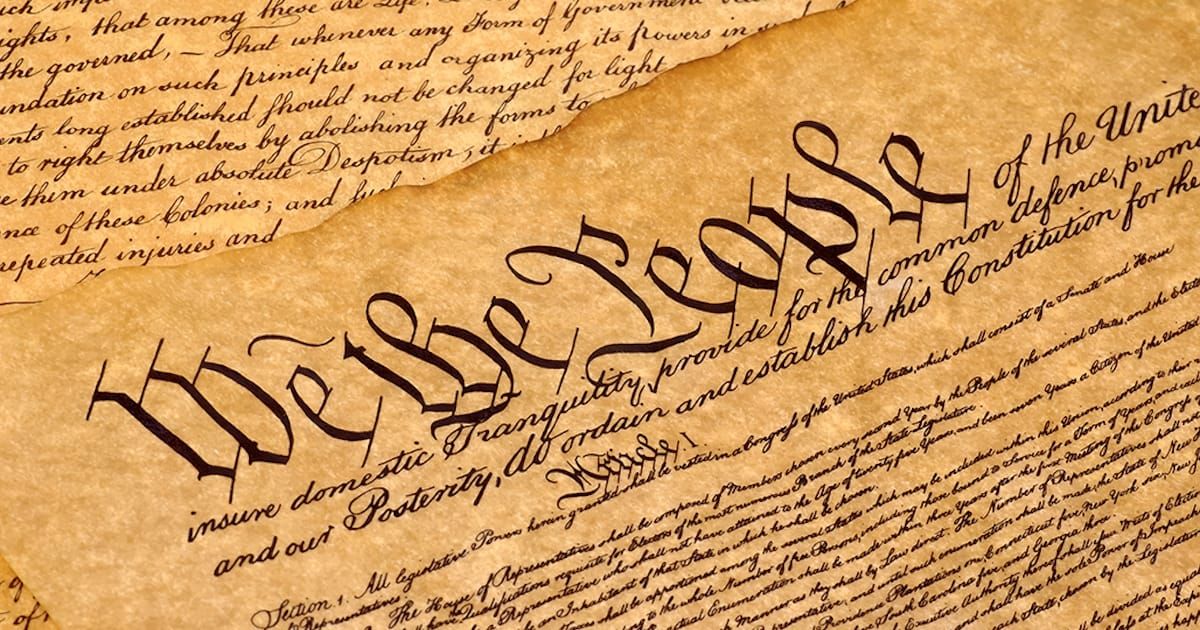 ights, that among these are Life,
the governed, — That whenever any Form of Government
undation on such principles and organizing its powers in
ents long established should not be changed for light
to right themselves by abolishing the forms to
e them under absolute Despotism, it is
nce of these Colonies; and such
repeated injuries and
We the People of the Unite
insure domestic Tranquility, provide for the common defence, promo
and our Posterity, do ordain and establish this Constitution for the
Article. I.
Section. 1. All legislative Powers herein granted shall be vested in a Congress of the United States, which shall consist of a Senate and House
Representatives.
The House of Representatives shall be composed of Members chosen every second Year by the People of the several States, and the Elect
have Qualifications requisite for Electors of the most numerous Branch of the State Legislature.
a Representative who shall not have attained to the Age of twenty five Years, and been seven Years a Citizen of the United
an Inhabitant of that State in which he shall be chosen.
shall be apportioned among the several States which may be included within this Union, according to their
to the whole Number of free Persons, including those bound to Service for a Term of Years, and
actual Enumeration shall be made within three Years after the first Meeting of the Congress
Manner as they shall by Law direct. The Number of Representatives shall not
Representative; and until such enumeration shall be made, the State of New
Providence Plantations one, Connecticut five, New York six, New
South Carolina five, and Georgia three.
Executive Authority thereof shall issue Writs of Elect
shall have the sole Power of Impeach
each State, chosen by the Legislature
be divided as equal